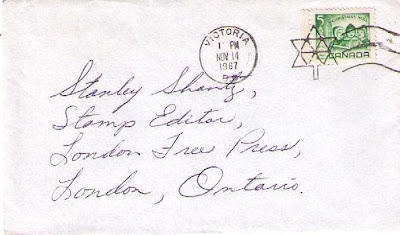 VICTORIA
1 PM
NOV 14
1967
5
CANADA
Stanley Shantz,
Stamp Editor,
London Free Press,
London, Ontario.